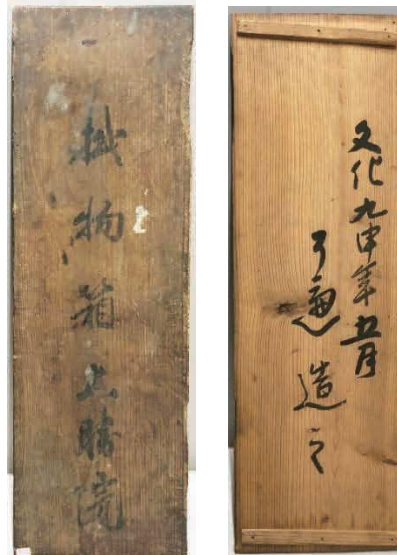 掛物箱 勝院
文化九申年五月
了 造之